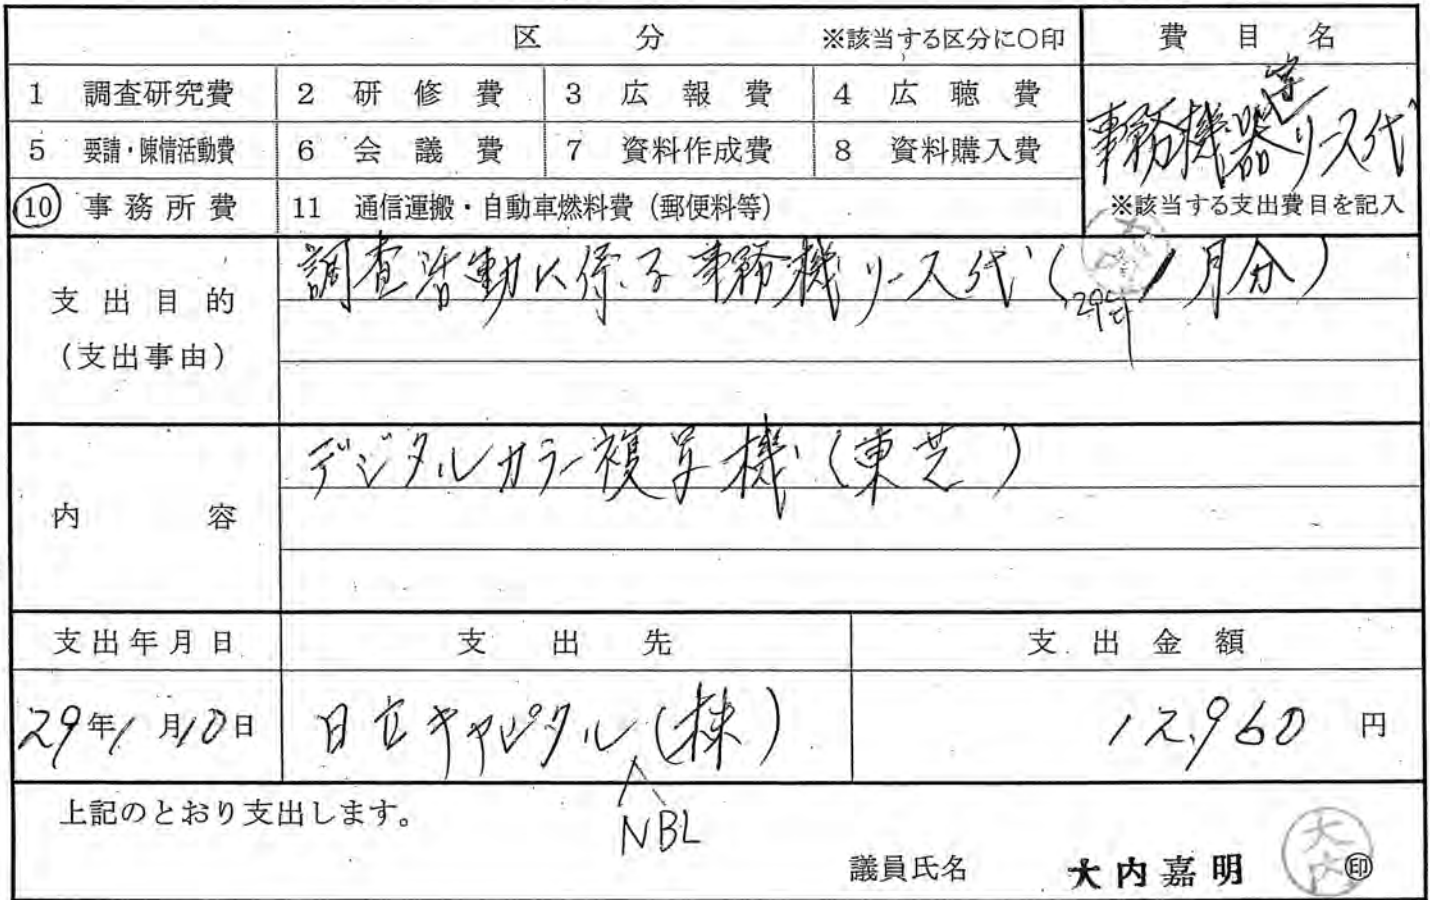 区 分 ※該当する区分に○印 費 目 名
1 調査研究費 2 研 修 費 3 広 報 費 4 広 聴 費
5 要請・陳情活動費 6 会 議 費 7 資料作成費 8 資料購入費
事務機器リース代
⑩ 事 務 所 費 11 通信運搬・自動車燃料費(郵便料等) ※該当する支出費目を記入
支 出 目 的
(支出事由)
調査活動に係る事務機リース代(29年1月分)
内 容
デジタルカラー複写機(東芝)
支出年月日 支 出 先 支 出 金 額
29年1月10日 日立キャピタル(株) 12,960 円
NBL
上記のとおり支出します。
議員氏名 大内嘉明 ㊞
大内